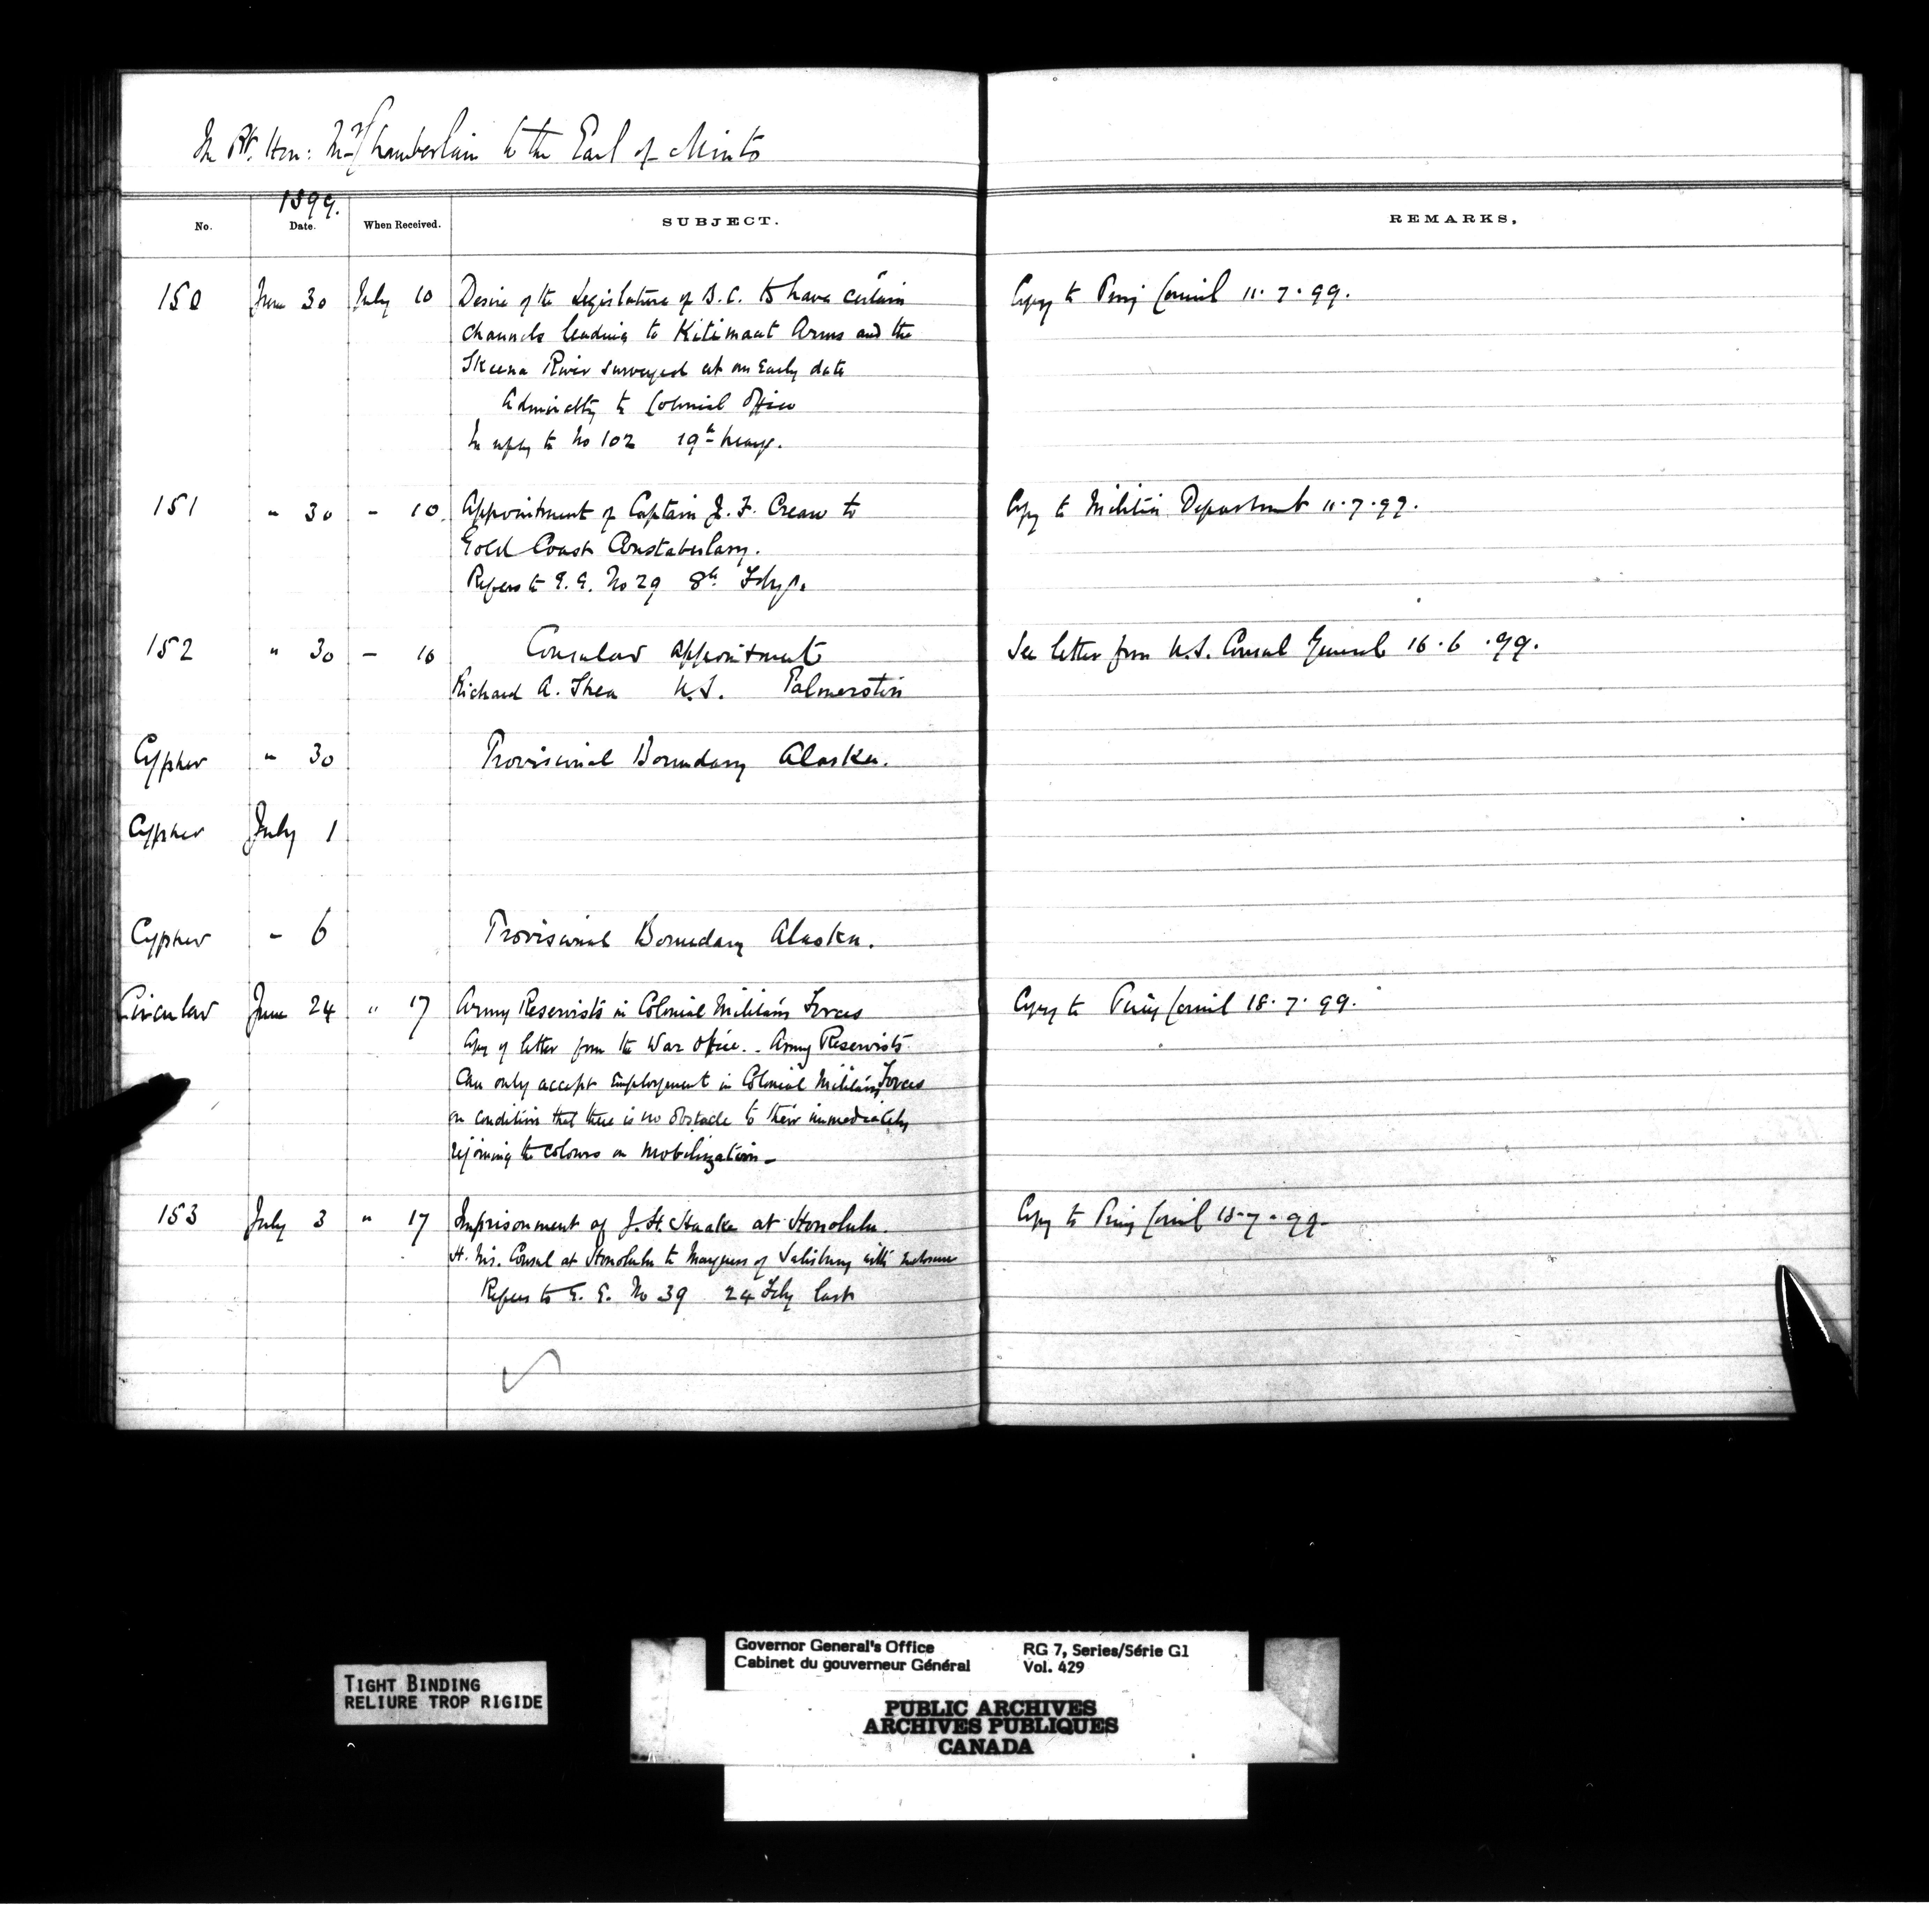 The Rt. Hon: Mr Chamberlain to the Earl of Minto
1899.
No. Date. When Received. SUBJECT. REMARKS.
150 June 30 July 10 Desire of the Legislature of B.C. to have certain Copy to Privy Council 11.7.99.
channels leading to Kitimaat Arms and the
Skeena River surveyed at an early date
Admiralty to Colonial Office
In reply to No 102 19th
151 " 30 - 10 Appointment of Captain J. F. Crean to Copy to Militia Department 11.7.99.
Gold Coast Constabulary.
Refers to G. G. No 29 8th Feby.
152 " 30 - 10 Consular Appointment See letter from U.S. Consul General 16.6.99.
Richard A. Shea U.S. Palmerston
Cypher " 30 Provisional Boundary Alaska.
Cypher July 1
Cypher - 6 Provisional Boundary Alaska.
Circular June 24 " 17 Army Reservists in Colonial Military Forces Copy to Privy Council 18.7.99.
Copy of letter from the War Office.. Army Reservists
can only accept Employment in Colonial Military Forces
on condition that there is no obstacle to their immediately
rejoining the colours on mobilization-
153 July 3 " 17 Imprisonment of J. H. Haake at Honolulu. Copy to Privy Council 18-7-99-
H. Ms. Consul at Honolulu to Marquess of Salisbury with Enclosure
Refers to G. G. No 39 24 Feby last
TIGHT BINDING
RELIURE TROP RIGIDE
Governor General's Office RG 7, Series/Série G1
Cabinet du gouverneur Général Vol. 429
PUBLIC ARCHIVES
ARCHIVES PUBLIQUES
CANADA